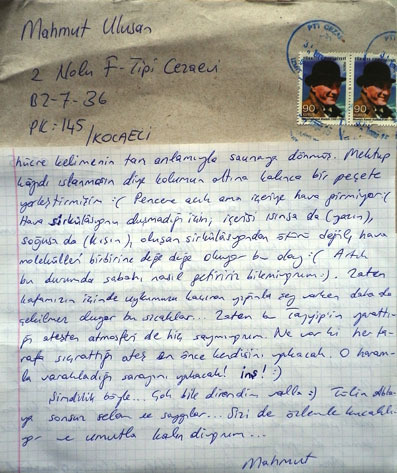 Mahmut Ulusan
2 Nolu F-Tipi Cezaevi
B2-7-36
PK:145
/KOCAELİ
PTT
90
90
hücre kelimenin tam anlamıyla saunaya dönmüş. Mektup
kağıdı ıslanmasın diye kolumun altına kalınca bir peçete
yerleştirmişim :( Pencere açık ama içeriye hava girmiyor :(
Hava sirkülasyonu olmadığı için, içerisi ısınsa da (yazın),
soğusa da (kışın), oluşan sirkülasyondan ötürü değil, hava
molekülleri birbirine değe değe oluyor bu olay :( Artık
bu durumda sabahı nasıl getiririz bilemiyorum :). Zaten
kafamızın içinde uykumuzu kaçıran yığınla şey varken daha da
çekilmez oluyor bu sıcaklar... Zaten bu tayyipin yarattı-
ğı ateşten atmosferi de hiç saymıyorum. Ne var ki her ta-
rafa sıçrattığı ateş en önce kendisini yakacak. O haram-
la varakladığı sarayını yakacak! inş! :)
Şimdilik böyle... Çok bile direndim valla :) Tülin abla-
ya sonsuz selam ve saygılar... Sizi de özlemle kucaklı-
yor ve umutla kalın diyorum...
Mahmut